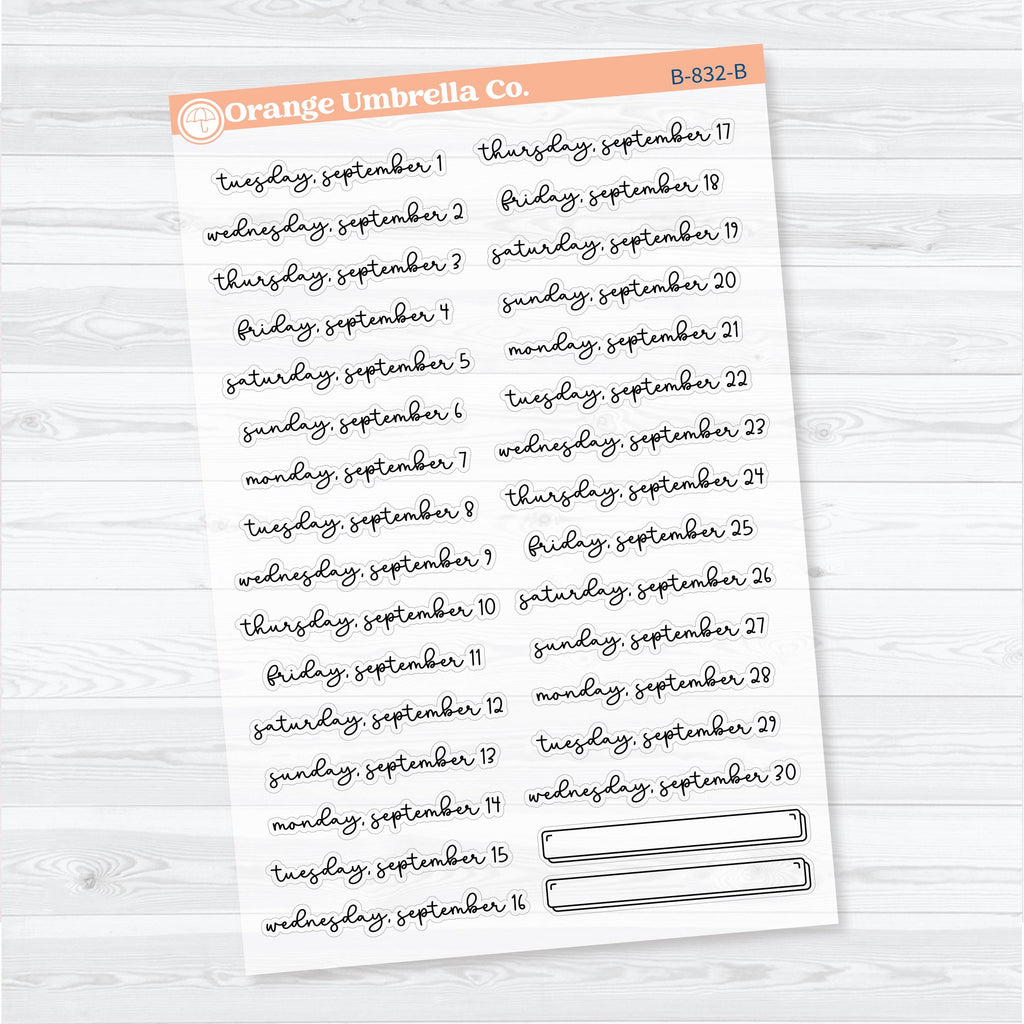 Orange Umbrella Co.
B-832-B
tuesday, september 1
wednesday, september 2
thursday, september 3
friday, september 4
saturday, september 5
sunday, september 6
monday, september 7
tuesday, september 8
wednesday, september 9
thursday, september 10
friday, september 11
saturday, september 12
sunday, september 13
monday, september 14
tuesday, september 15
wednesday, september 16
thursday, september 17
friday, september 18
saturday, september 19
sunday, september 20
monday, september 21
tuesday, september 22
wednesday, september 23
thursday, september 24
friday, september 25
saturday, september 26
sunday, september 27
monday, september 28
tuesday, september 29
wednesday, september 30